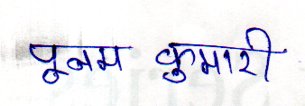 पूनम कुमारी